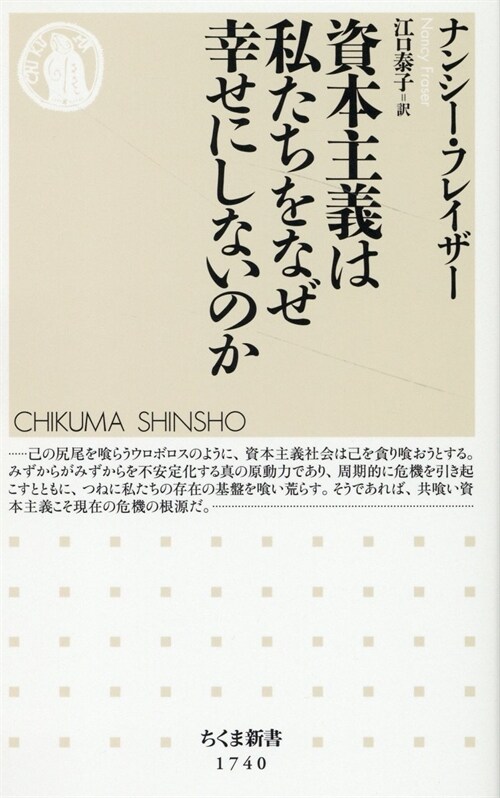 ナンシー・フレイザー
Nancy Fraser
江口泰子=訳
資本主義は
私たちをなぜ
幸せにしないのか
CHIKUMA SHINSHO
……己の尻尾を喰らうウロボロスのように、資本主義社会は己を貪り喰おうとする。
みずからがみずからを不安定化する真の原動力であり、周期的に危機を引き起
こすとともに、つねに私たちの存在の基盤を喰い荒らす。そうであれば、共喰い資
本主義こそ現在の危機の根源だ。……………………………………………
ちくま新書
1740
CHIKUMA